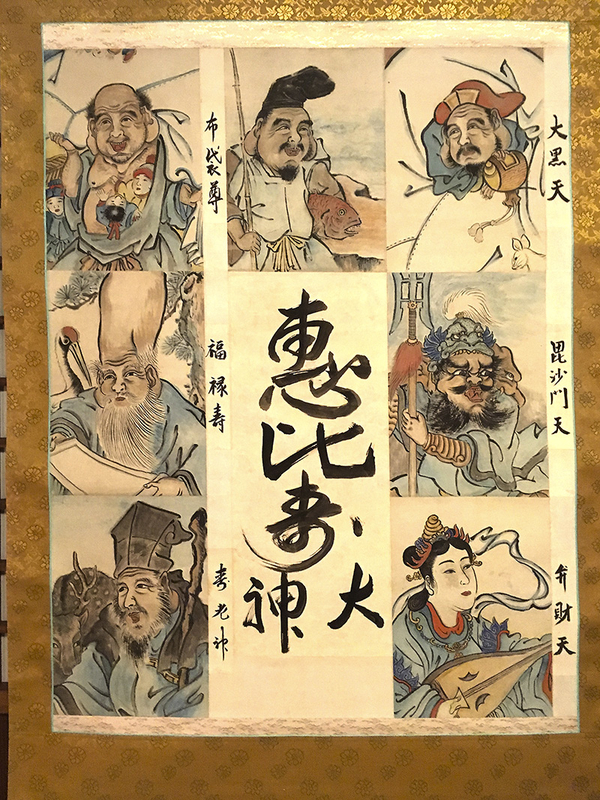 大黒天
毘沙門天
弁財天
惠比寿
大神
布袋尊
福禄寿
寿老神